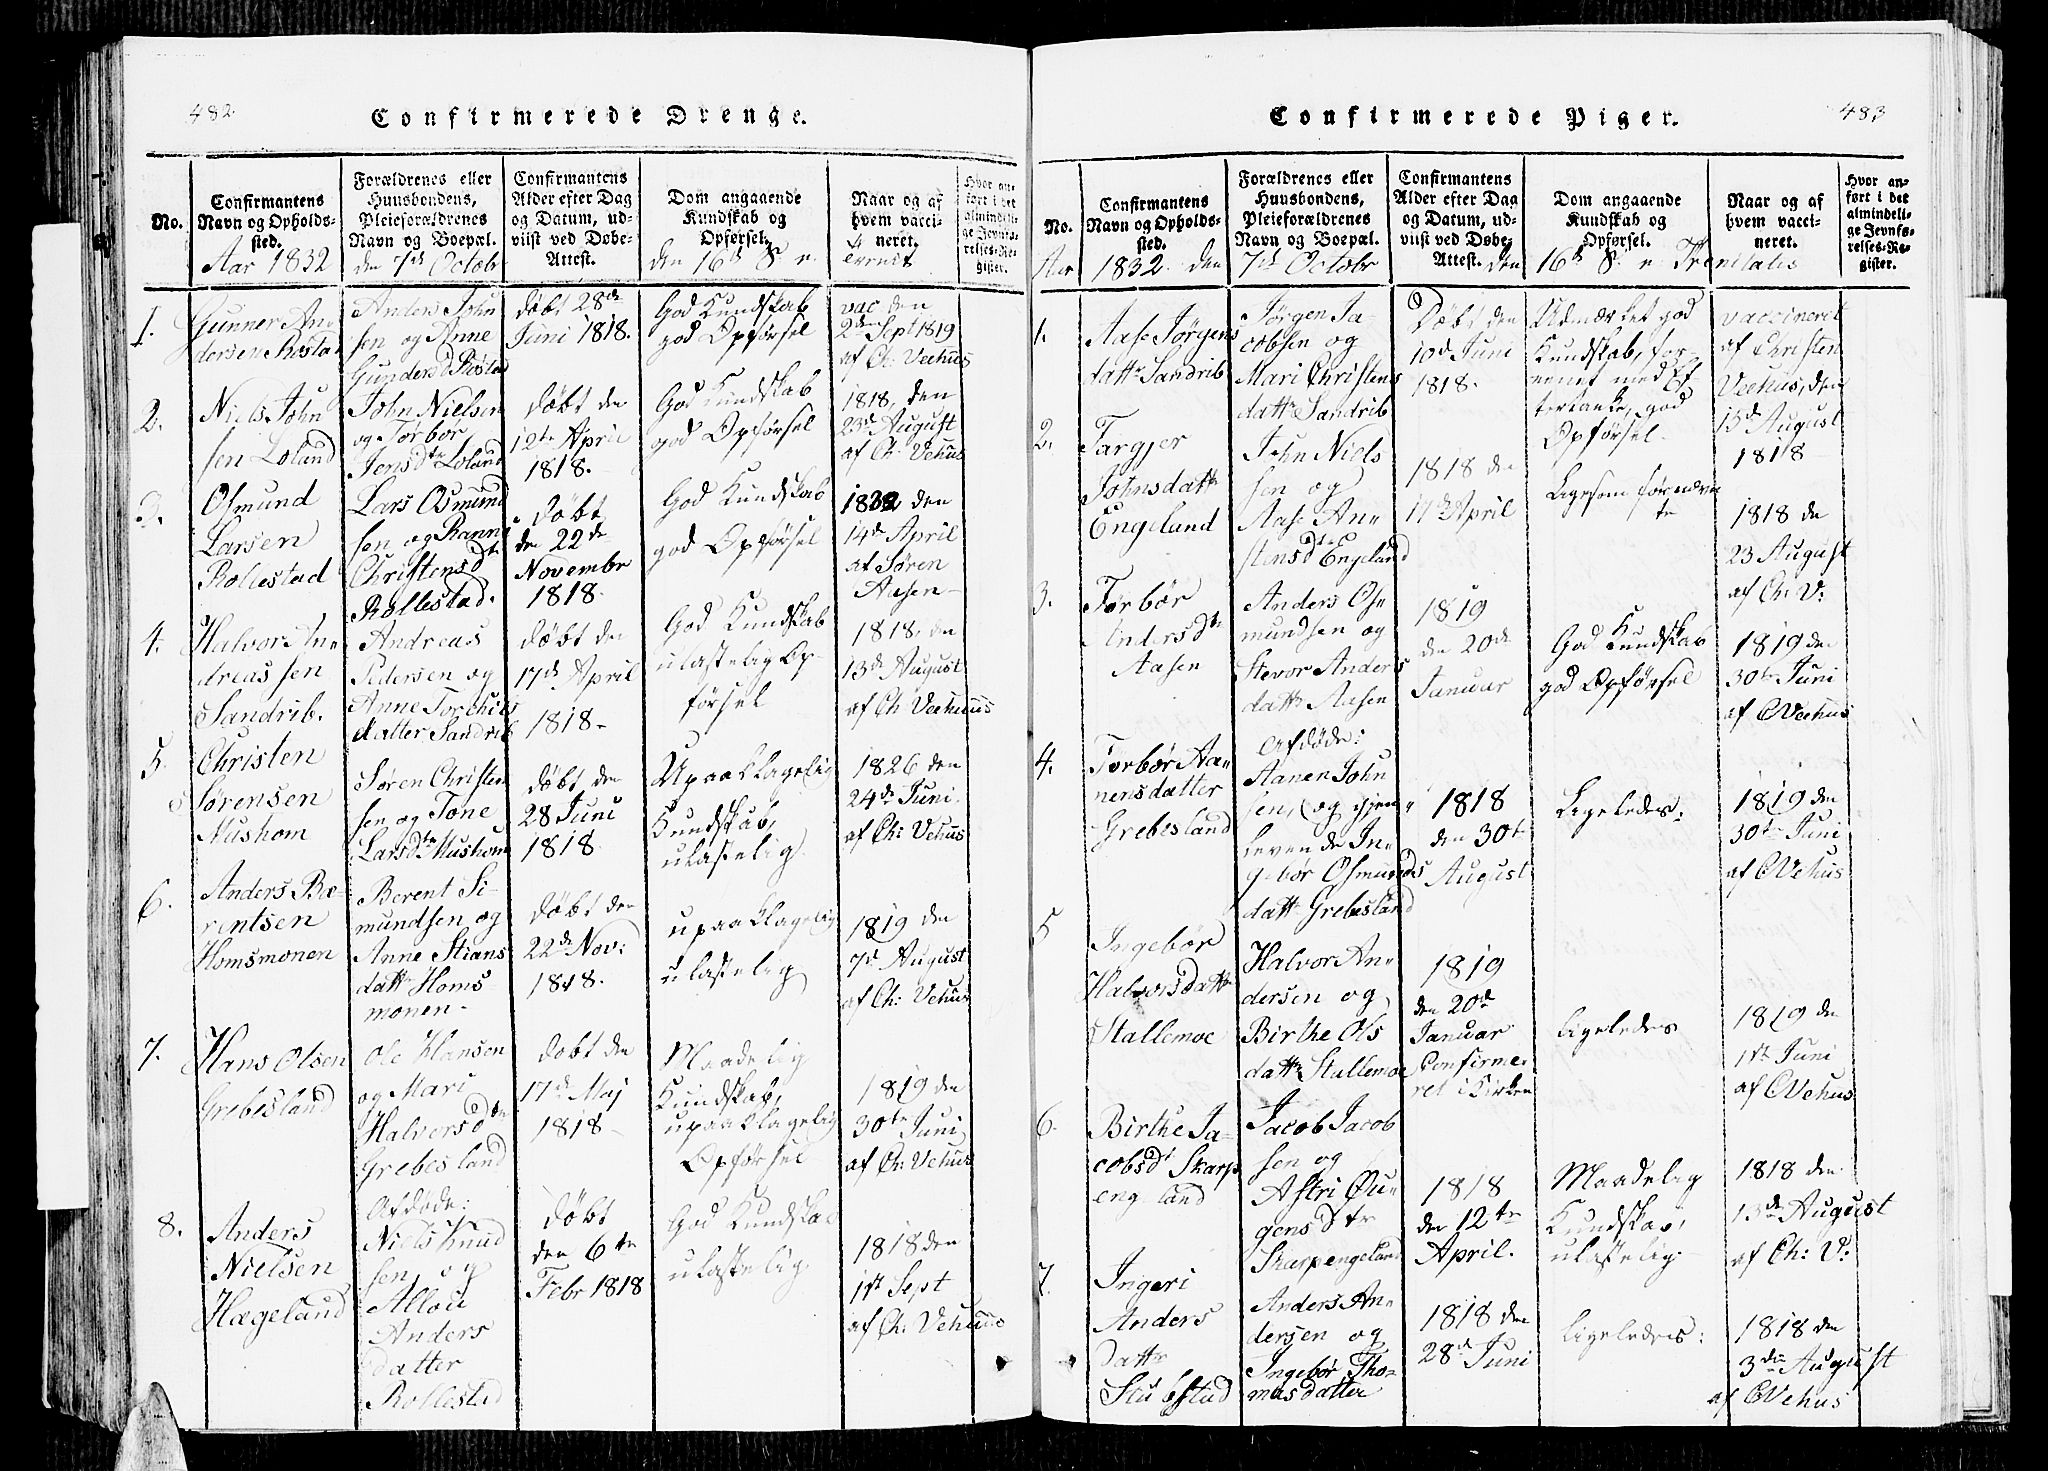 482.
Confirmerede Drenge.
No.
Confirmantens
Navn og Opholds-
sted.
Forældrenes eller
Huusbondens,
Pleieforældrenes
Navn og Boepæl.
Confirmantens
Alder efter Dag
og Datum, ud-
viist ved Døbe-
Attest.
Dom angaaende
Kundskab og
Opførsel.
Naar og af
hvem vacci-
neret.
Hvor an-
ført i det
almindeli-
ge Jevnfø-
relses-Re-
gister.
Aar 1832 den 7de Octobr den 16de S e
1.
Gunner An
dersen Røstad
Anders John
sen og Anne
Gundersd Røstad
døbt 28de
Juni 1818.
God Kundskab
god Opførsel
vac den
2den Sept 1819
af Ch. Veehus
2.
Niels John
sen Loland
John Nielsen
og Torbør
Jensdtr Loland
døbt den
12te April
1818.
God Kundskab
god Opførsel
1818, den
23de August
af Ch: Vehus
3.
Osmund
Larsen
Rollestad
Lars Osmund
sen og Ranni
Christensdtr
Rollestad.
døbt
den 22de
Novembr
1818.
God Kundskab
god Opførsel
1832 den
14de April
af Søren
Aasen
4.
Halvor An-
dreassen
Sandrib.
Andreas
Pedersen og
Anne Torchils
datter Sandrib
døbt den
17de April
1818-
God Kundskab
ulastelig Op-
førsel
1818, den
13de August
af Ch Veehuus
5.
Christen
Sørensen
Mushom
Søren Christen
sen og Tone
Larsdtr Mushom
døbt den
28 Juni
1818
Upaaklagelig
Kundskab,
ulastelig.
1826 den
24de Juni.
af Ch: Vehus
6.
Anders Be-
rentsen
Homsmonen
Berent Si-
mundsen og
Anne Stians
dattr Homs-
monen-
døbt den
22de Nov:
1818.
upaaklagelig
ulastelig
1819 den
7d August
af Ch: Vehus
7.
Hans Olsen
Grebesland
Ole Hansen
og Mari
Halvorsdtr
Grebesland
døbt den
17de Maj
1818-
Maadelig
Kundskab,
upaaklagelig
Opførsel
1819 den
30te Juni
af Ch: Vehus
8.
Anders
Nielsen
Hægeland
Afdøde:
Niels Knud
sen og
Anders
datter
Rollestad
døbt
den 6te
Febr 1818
God Kundskab
ulastelig
1818 den
1st Sept
af Ch: Vehuus
483
Confirmerede Piger.
No.
Confirmantens
Navn og Opholds-
sted.
Forældrenes eller
Huusbondens,
Pleieforældrenes
Navn og Boepæl.
Confirmantens
Alder efter Dag
og Datum, ud-
viist ved Døbe-
Attest.
Dom angaaende
Kundskab og
Opførsel.
Naar og af
hvem vacci-
neret.
Hvor an-
ført i det
almindeli-
ge Jevnfø-
relses-Re-
gister.
Aar 1832 den 7de Octobr den 16de S. e Trenitatis
1.
Aase Jørgens
dattr Sandrib
Jørgen Ja-
cobsen og
Mari Christens
dattr Sandrib
Døbt den
10d Juni
1818.
Udmærket god
Kundskab, for-
eenet med Ef
tertanke, god
Opførsel.
vaccineret
af Christen
Veehus, den
13de August
1818
2.
Targjer
Johnsdattr
Engeland
John Niels
sen og
Aase An-
stensdtr Engeland
1818 den
17de April
Ligesom førnævn
te
1818 den
23 August
af Ch: V:
3.
Torbør
Andersdtr
Aasen
Anders Os-
mundsen og
Stevor Anders
dattr Aasen
1819
den 20de
Januar
God Kundskab
god Opførsel
1819 den
30te Juni
af C Veehus
4.
Torbør Aa-
nensdatter
Grebesland
Afdøde:
Aanen John
sen, og gjen-
levende In-
gebør Osmunds
dattr Grebesland
1818
den 30te
August
Ligeledes:
1819 den
30te Juni
af C Vehus
5
Ingebør
Halvorsdattr
Stallemoe
Halvor An-
dersen og
Birthe Ols
dattr Stallemoe
1819
den 20de
Januar
Confirme-
ret i Kirken
Ligeledes
1819 den
1st Juni
af C Vehus
6.
Birthe Ja-
cobsdt Skarp
engeland
Jacob Jacob
sen og
Astri Ou-
gensdtr
Skarpengeland
1818
den 12te
April.
Maadelig
Kundskab,
ulastelig-
1818 den
13de August
af Ch: V:
7.
Ingeri
Anders
Dattr
Stubstad
Anders An-
dersen og
Ingebør Tho-
masdatter
1818 den
28de Juni
Ligeledes:
1818 den
3die August
af C Vehus